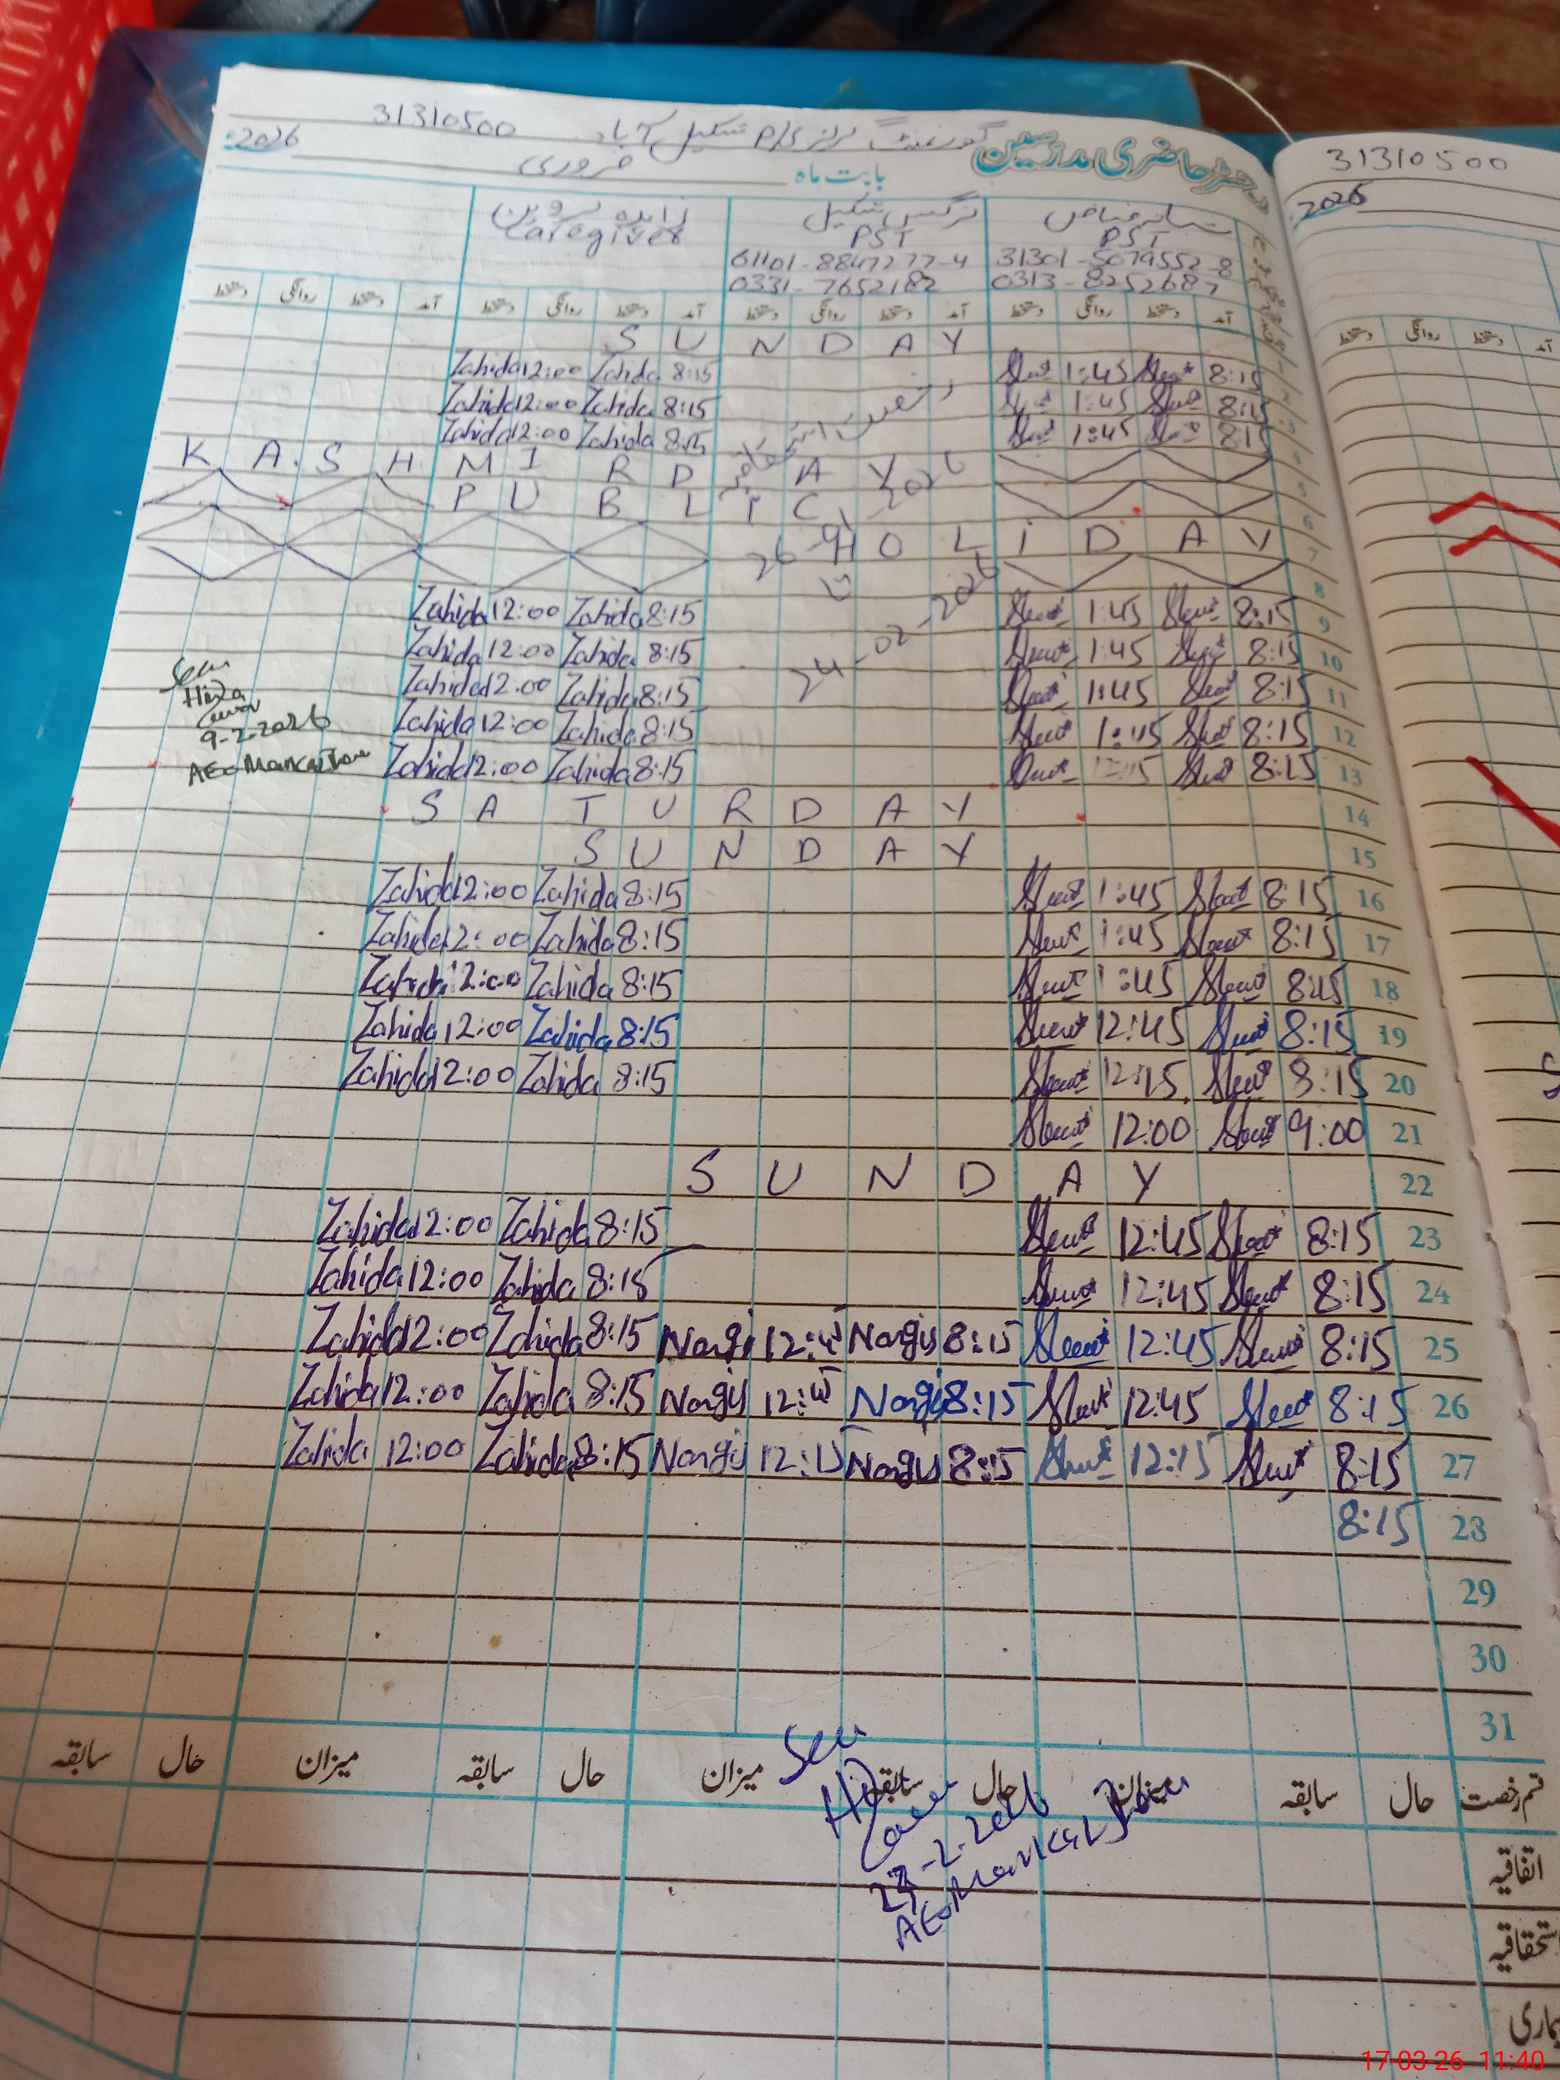 دفتر حاضری مدرسین گورنمنٹ گرلز P/S شکیل آباد 31310500
بابت ماہ فروری 2026
نرگس شکیل زاہدہ پروین
PST PST Caregiver
31301-5079552-8 61101-8847277-4
0313-8252687 0331-7652182
آمد دستخط روانگی دستخط آمد دستخط روانگی دستخط آمد دستخط روانگی دستخط آمد دستخط روانگی دستخط
SUNDAY
Zahida 12:00 Zahida 8:15 1:45 8:15
Zahida 12:00 Zahida 8:15 1:45 8:15
Zahida 12:00 Zahida 8:15 1:45 8:15
رخصت استحقاقیہ
26-01-2026
24-02-2026
KASHMIR DAY
PUBLIC 6
HOLIDAY 7
8
Zahida 12:00 Zahida 8:15 1:45 8:15 9
Zahida 12:00 Zahida 8:15 1:45 8:15 10
Zahida 12:00 Zahida 8:15 1:45 8:15 11
Zahida 12:00 Zahida 8:15 1:45 8:15 12
Zahida 12:00 Zahida 8:15 12:15 8:15 13
9-2-2026
SATURDAY 14
SUNDAY 15
Zahida 12:00 Zahida 8:15 1:45 8:15 16
Zahida 12:00 Zahida 8:15 1:45 8:15 17
Zahida 12:00 Zahida 8:15 1:45 8:15 18
Zahida 12:00 Zahida 8:15 12:45 8:15 19
Zahida 12:00 Zahida 8:15 12:15 8:15 20
12:00 9:00 21
SUNDAY 22
Zahida 12:00 Zahida 8:15 12:45 8:15 23
Zahida 12:00 Zahida 8:15 12:45 8:15 24
Zahida 12:00 Zahida 8:15 Nargis 12:45 Nargis 8:15 12:45 8:15 25
Zahida 12:00 Zahida 8:15 Nargis 12:45 Nargis 8:15 12:45 8:15 26
Zahida 12:00 Zahida 8:15 Nargis 12:15 Nargis 8:15 12:15 8:15 27
8:15 28
29
30
31
قسم رخصت حال سابقہ میزان حال سابقہ میزان حال سابقہ میزان حال سابقہ
اتفاقیہ
استحقاقیہ
بیماری
31310500
2026
آمد دستخط روانگی دستخط
17-03-26 11:40